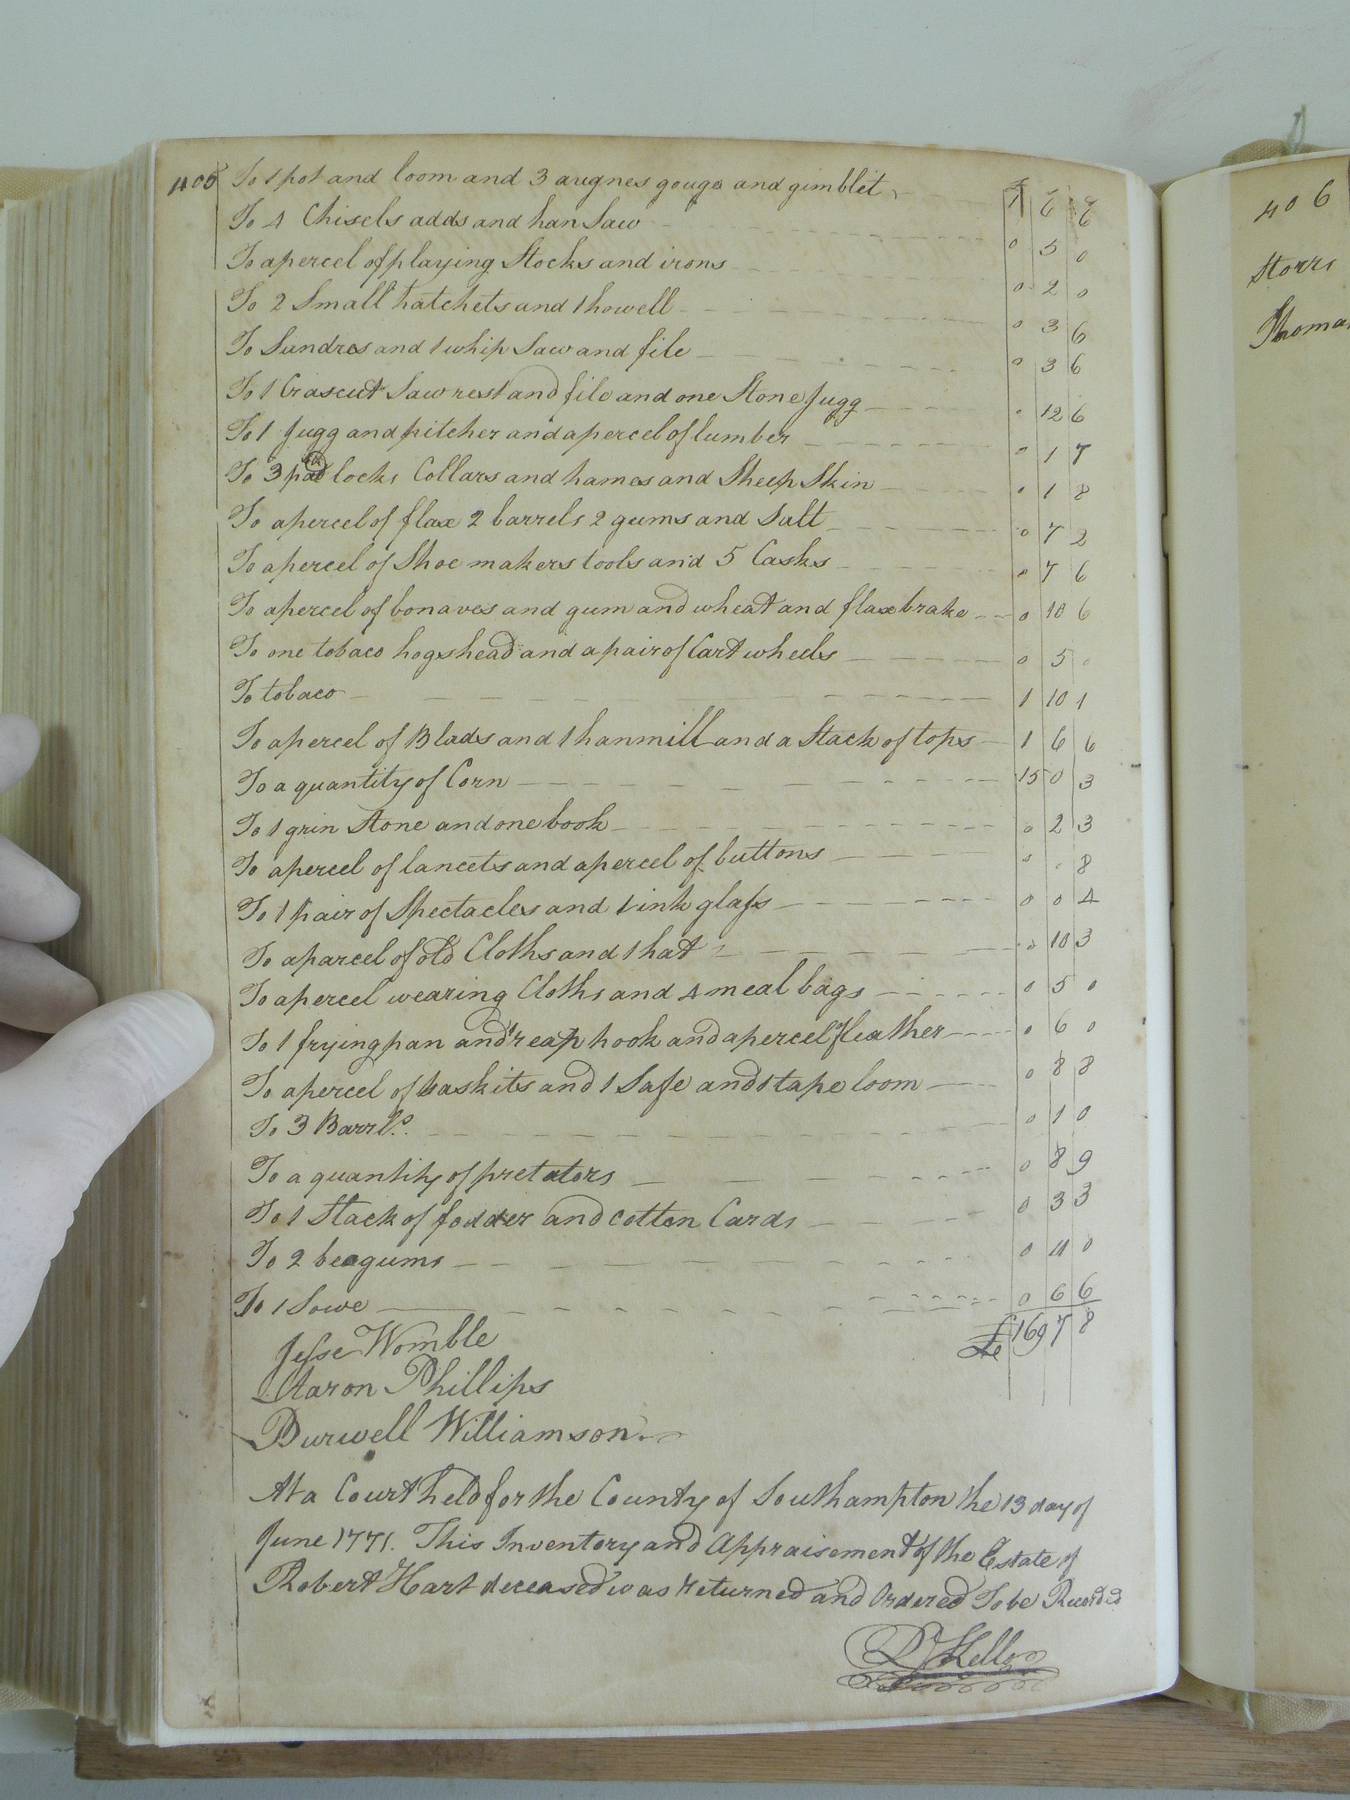 405 To 1 pot and loom and 3 augnes gouge and gimblit 1 6 6
To 4 Chisels adds and han Saw 0 5 0
To a percel of playing Stocks and irons 0 2 0
To 2 Small hatchets and 1 howell 0 3 6
To Sundres and 1 whip Saw and file 0 3 6
To 1 Crascut Saw rest and file and one Stone Jugg 0 12 6
To 1 Jugg and pitcher and a percel of lumber 0 1 7
To 3 pad locks Collars and hames and Sheep Skin 0 1 8
To a percel of flax 2 barrels 2 gums and Salt 0 7 2
To a percel of Shoe makers tools and 5 Casks 0 7 6
To a percel of bonaves and gum and wheat and flaxbrake 0 10 6
To one tobaco hogshead and a pair of Cart wheels 0 5 0
To tobaco 1 10 1
To a percel of Blads and 1 hanmill and a Stack of tops 1 6 6
To a quantity of Corn 15 0 3
To 1 grin Stone and one book 0 2 3
To a percel of lancets and a percel of buttons 0 0 8
To 1 pair of Spectacles and 1 ink glass 0 0 4
To a parcel of old Cloths and 1 hat 0 10 3
To a percel wearing Cloths and 4 meal bags 0 5 0
To 1 frying pan and 1 reap hook and a percel of leather 0 6 0
To a percel of baskits and 1 Safe and 1 tape loom 0 8 8
To 3 Barrls. 0 1 0
To a quantity of pretators 0 8 9
To 1 Stack of fodder and cotton Cards 0 3 3
To 2 beagums 0 4 0
To 1 Sowe 0 6 6
£169 7 8
Jesse Womble
Aaron Phillips
Burwell Williamson
At a Court held for the County of Southampton the 13 day of
June 1771. This Inventory and Appraisement of the Estate of
Robert Hart deceased was returned and Ordered To be Recorded
406
Storrs
Thoma